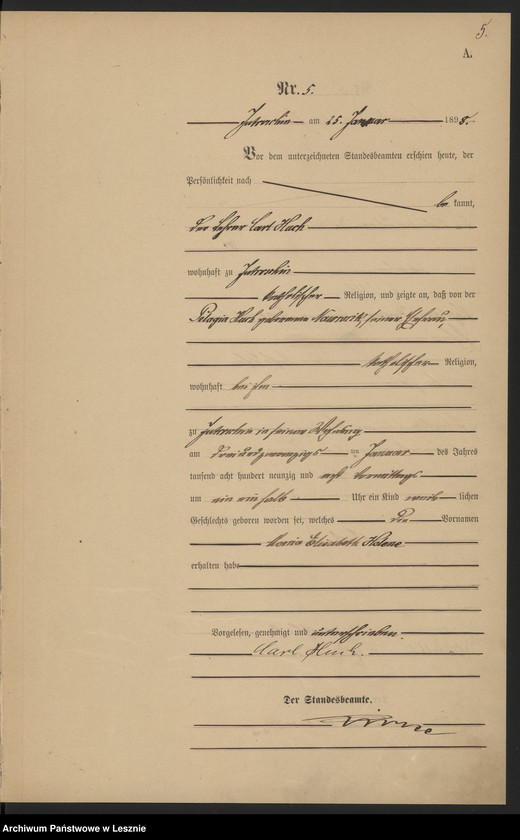 5.
A.
Nr. 5.
Jutroschin am 25. Januar 1898.
Vor dem unterzeichneten Standesbeamten erschien heute, der
Persönlichkeit nach
be kannt,
der Lehrer Carl
wohnhaft zu Jutroschin
katholischer Religion, und zeigte an, daß von der
Pelagia geborenen seiner Ehefrau,
katholischer Religion,
wohnhaft bei ihm
zu Jutroschin in seiner Wohnung
am dreiundzwanzigsten Januar des Jahres
tausend acht hundert neunzig und acht Vormittags
um ein einhalb Uhr ein Kind weib lichen
Geschlechts geboren worden sei, welches die Vornamen
Maria Elisabeth Helene
erhalten habe
Vorgelesen, genehmigt und unterschrieben.
Carl
Der Standesbeamte.
Archiwum Państwowe w Lesznie